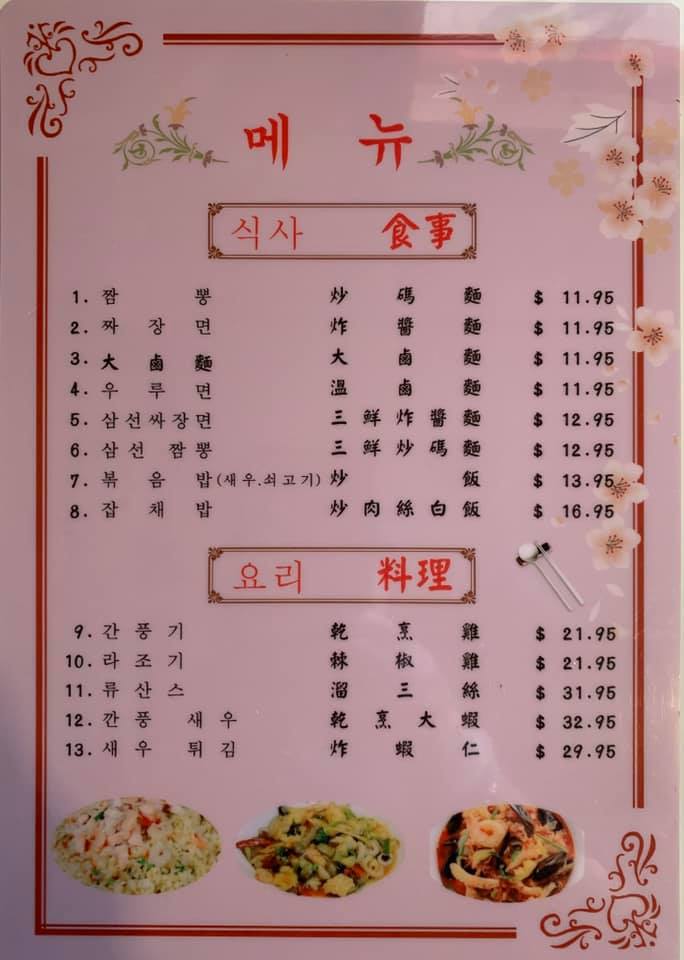 메뉴
식사 食事
1. 짬뽕 炒碼麵 $ 11.95
2. 짜장면 炸醬麵 $ 11.95
3. 大鹵麵 大鹵麵 $ 11.95
4. 우루면 溫鹵麵 $ 11.95
5. 삼선짜장면 三鮮炸醬麵 $ 12.95
6. 삼선 짬뽕 三鮮炒碼麵 $ 12.95
7. 볶음밥(새우.쇠고기) 炒飯 $ 13.95
8. 잡채밥 炒肉絲白飯 $ 16.95
요리 料理
9. 간풍기 乾烹雞 $ 21.95
10. 라조기 棘椒雞 $ 21.95
11. 류산스 溜三絲 $ 31.95
12. 깐풍 새우 乾烹大蝦 $ 32.95
13. 새우 튀김 炸蝦仁 $ 29.95